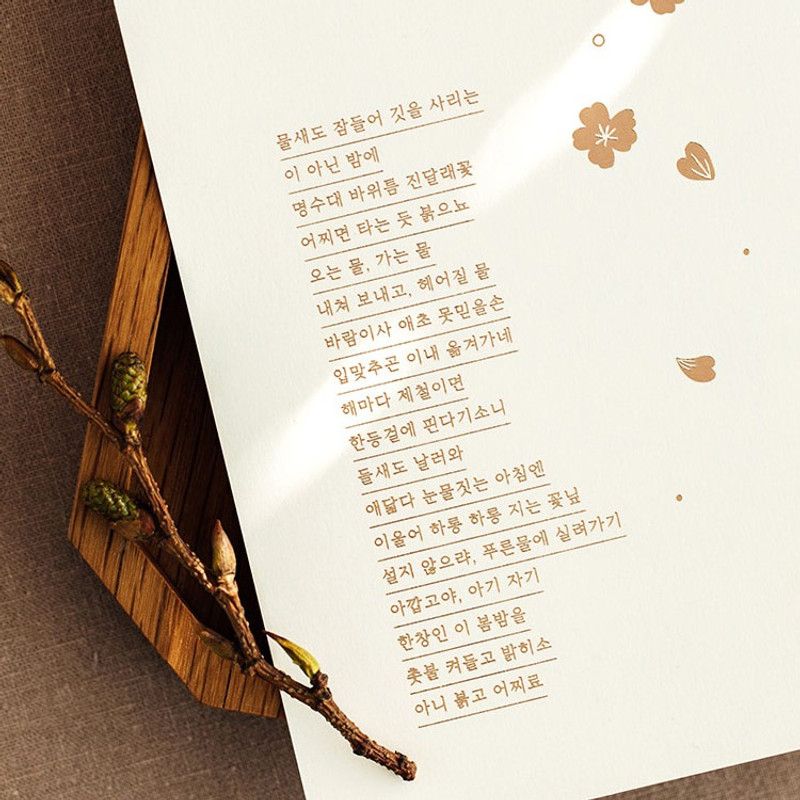 물새도 잠들어 깃을 사리는
이 아닌 밤에
명수대 바위틈 진달래꽃
어찌면 타는 듯 붉으뇨
오는 물, 가는 물
내쳐 보내고, 헤어질 물
바람이사 애초 못믿을손
입맞추곤 이내 옮겨가네
해마다 제철이면
한등걸에 핀다기소니
들새도 날러와
애닯다 눈물짓는 아침엔
이울어 하롱 하롱 지는 꽃닢
설지 않으랴, 푸른물에 실려가기
아깝고야, 아기 자기
한창인 이 봄밤을
촛불 켜들고 밝히소
아니 붉고 어찌료